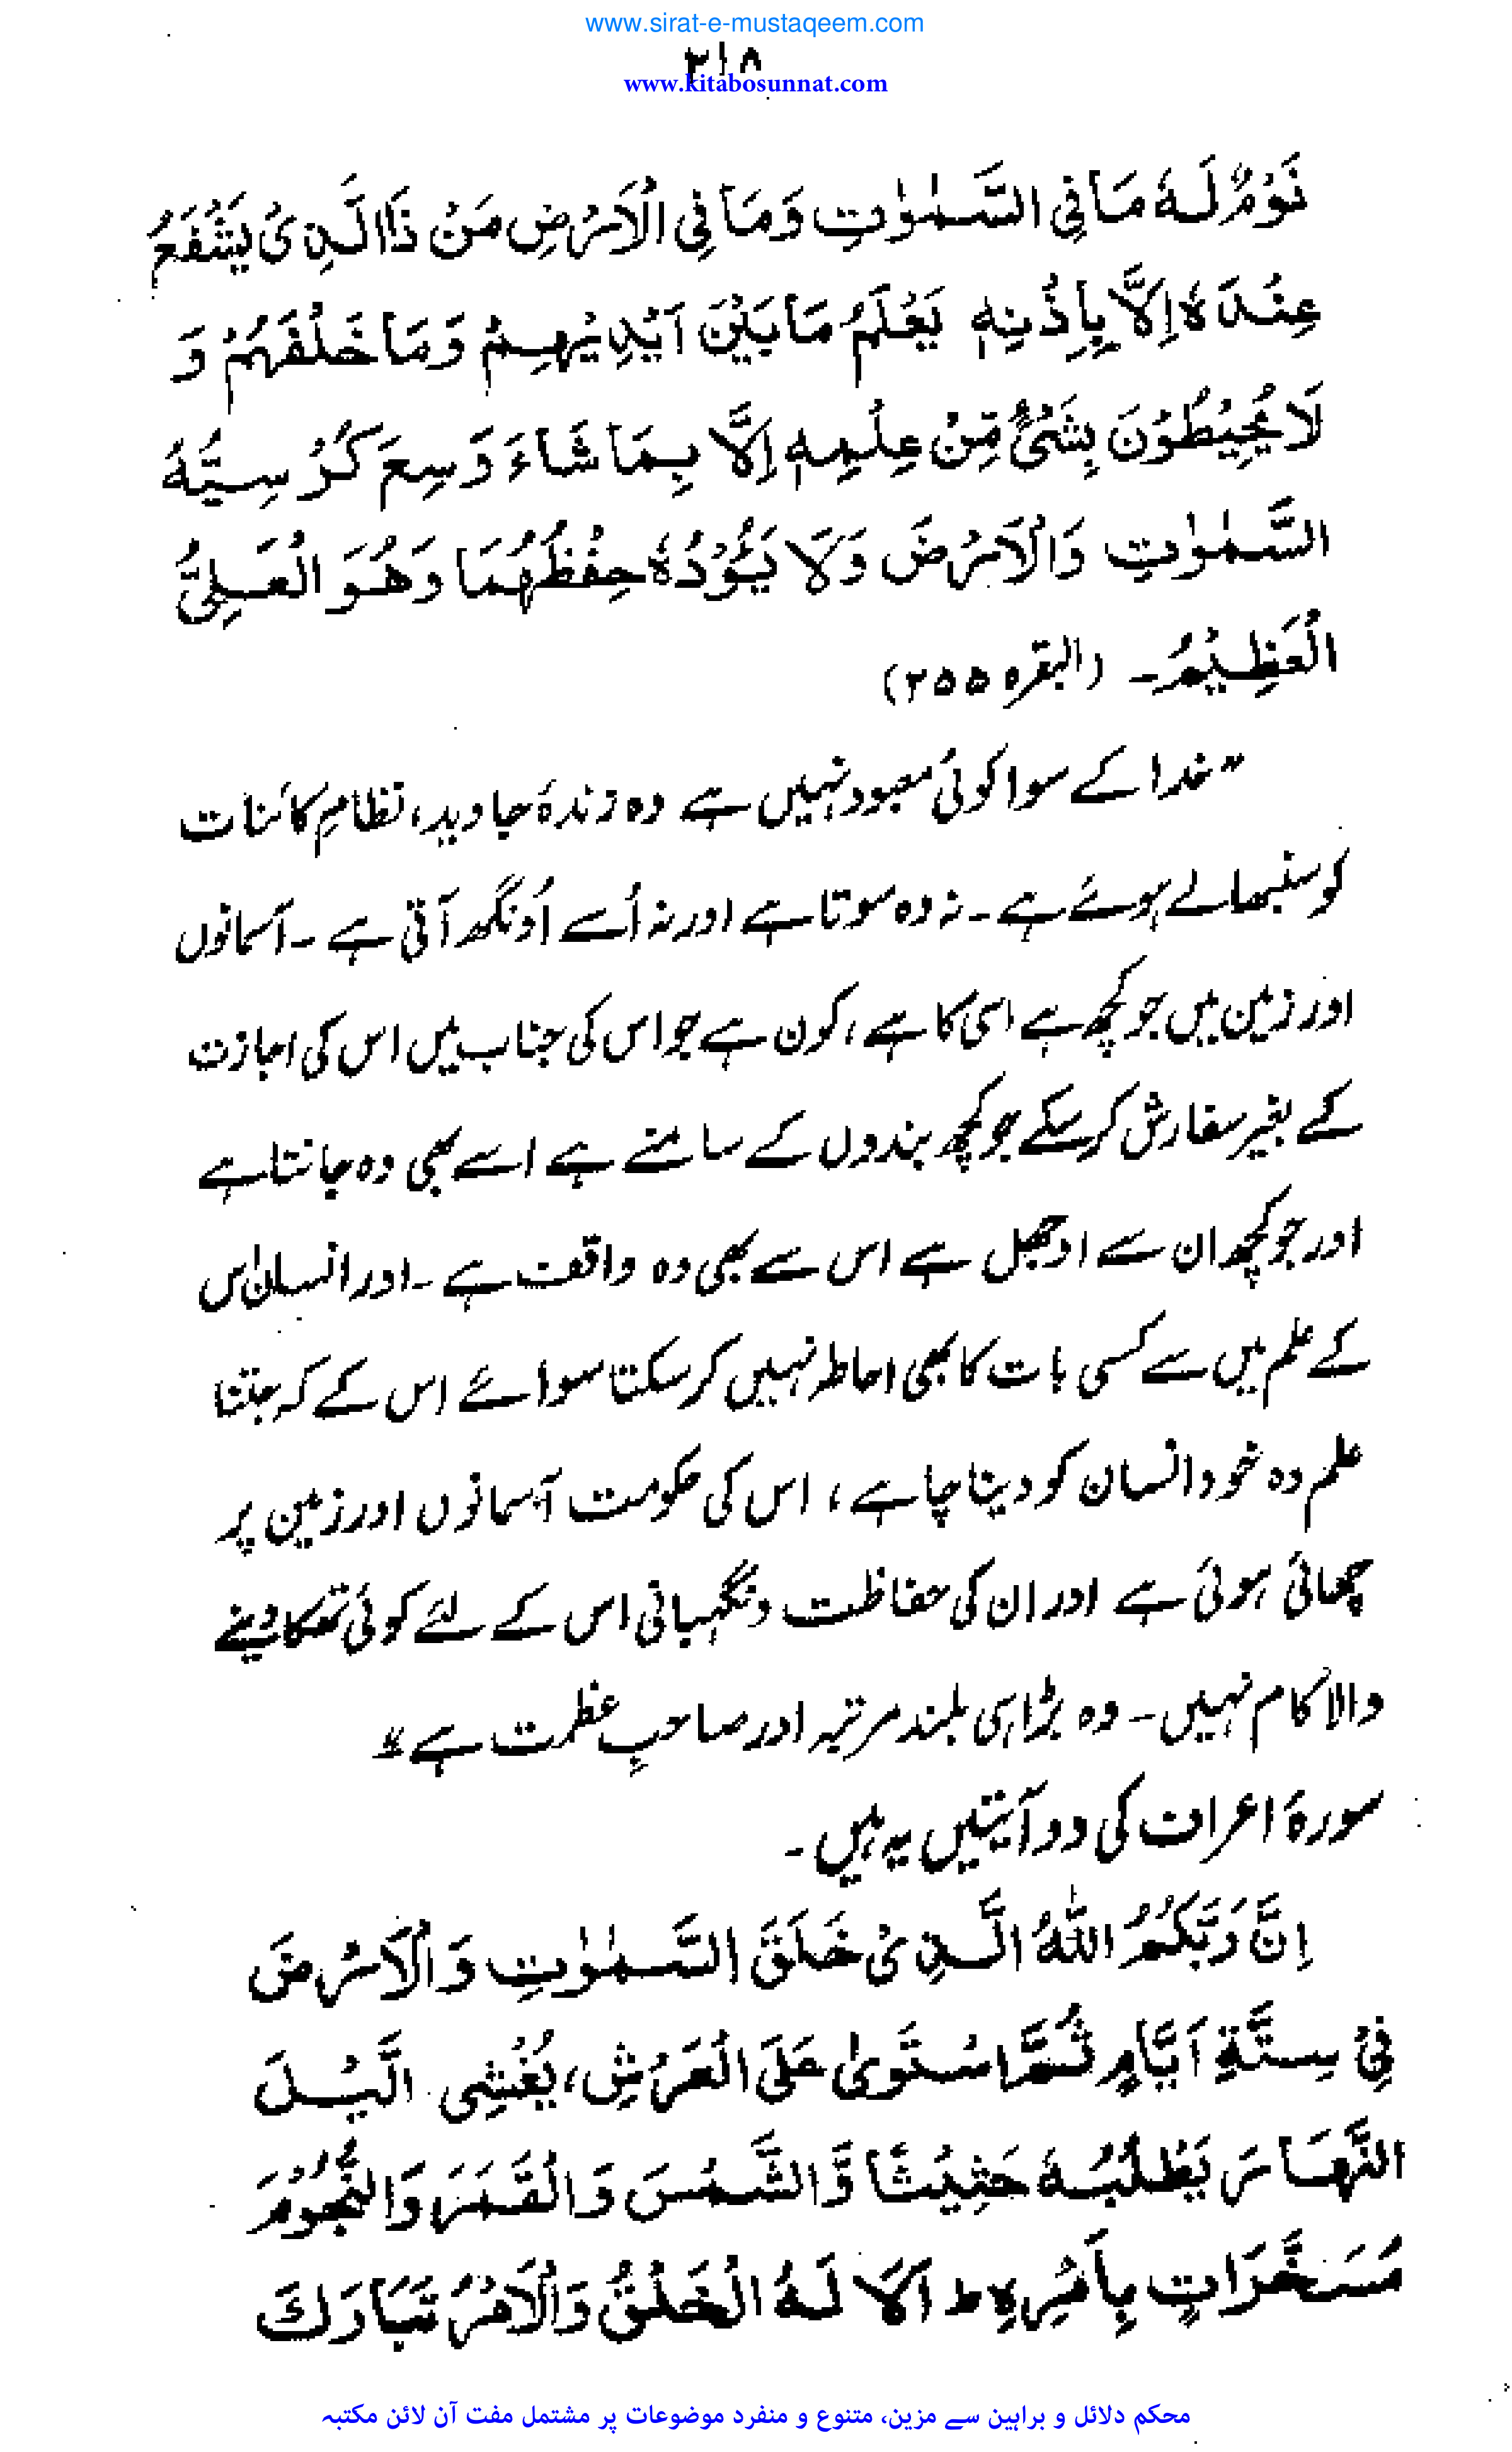 www.sirat-e-mustaqeem.com
۳۱۸
www.kitabosunnat.com
نَوْمٌ لَهٗ مَا فِی السَّمٰوٰتِ وَمَا فِی الْاَرْضِ مَنْ ذَا الَّذِیْ یَشْفَعُ
عِنْدَهٗ اِلَّا بِاِذْنِهٖ یَعْلَمُ مَا بَیْنَ اَیْدِیْهِمْ وَمَا خَلْفَهُمْ وَ
لَا یُحِیْطُوْنَ بِشَیْءٍ مِّنْ عِلْمِهٖ اِلَّا بِمَا شَاءَ وَسِعَ كُرْسِیُّهُ
السَّمٰوٰتِ وَالْاَرْضَ وَلَا یَئُوْدُهٗ حِفْظُهُمَا وَهُوَ الْعَلِیُّ
الْعَظِیْمُ۔ (البقرہ ۲۵۵)
”خدا کے سوا کوئی معبود نہیں ہے وہ زندۂ جاوید، نظامِ کائنات
کو سنبھالے ہوئے ہے۔ نہ وہ سوتا ہے اور نہ اُسے اُونگھ آتی ہے۔ آسمانوں
اور زمین میں جو کچھ ہے اسی کا ہے، کون ہے جو اس کی جناب میں اس کی اجازت
کے بغیر سفارش کرسکے جو کچھ بندوں کے سامنے ہے اسے بھی وہ جانتا ہے
اور جو کچھ ان سے اوجھل ہے اس سے بھی وہ واقف ہے۔ اور انسان اس
کے علم میں سے کسی بات کا بھی احاطہ نہیں کرسکتا سوائے اس کے کہ جتنا
علم وہ خود انسان کو دینا چاہے، اس کی حکومت آسمانوں اور زمین پر
چھائی ہوئی ہے اور ان کی حفاظت ونگہبانی اس کے لئے کوئی تھکا دینے
والا کام نہیں۔ وہ بڑا ہی بلند مرتبہ اور صاحبِ عظمت ہے“
سورۂ اعراف کی دو آیتیں یہ ہیں۔
اِنَّ رَبَّكُمُ اللّٰهُ الَّذِیْ خَلَقَ السَّمٰوٰتِ وَالْاَرْضَ
فِیْ سِتَّةِ اَیَّامٍ ثُمَّ اسْتَوٰی عَلَی الْعَرْشِ، یُغْشِی الَّیْلَ
النَّهَارَ یَطْلُبُهٗ حَثِیْثًا وَّالشَّمْسَ وَالْقَمَرَ وَالنُّجُوْمَ
مُسَخَّرَاتٍ بِاَمْرِهٖ ط اَلَا لَهُ الْخَلْقُ وَالْاَمْرُ تَبَارَكَ
محکم دلائل و براہین سے مزین، متنوع و منفرد موضوعات پر مشتمل مفت آن لائن مکتبہ